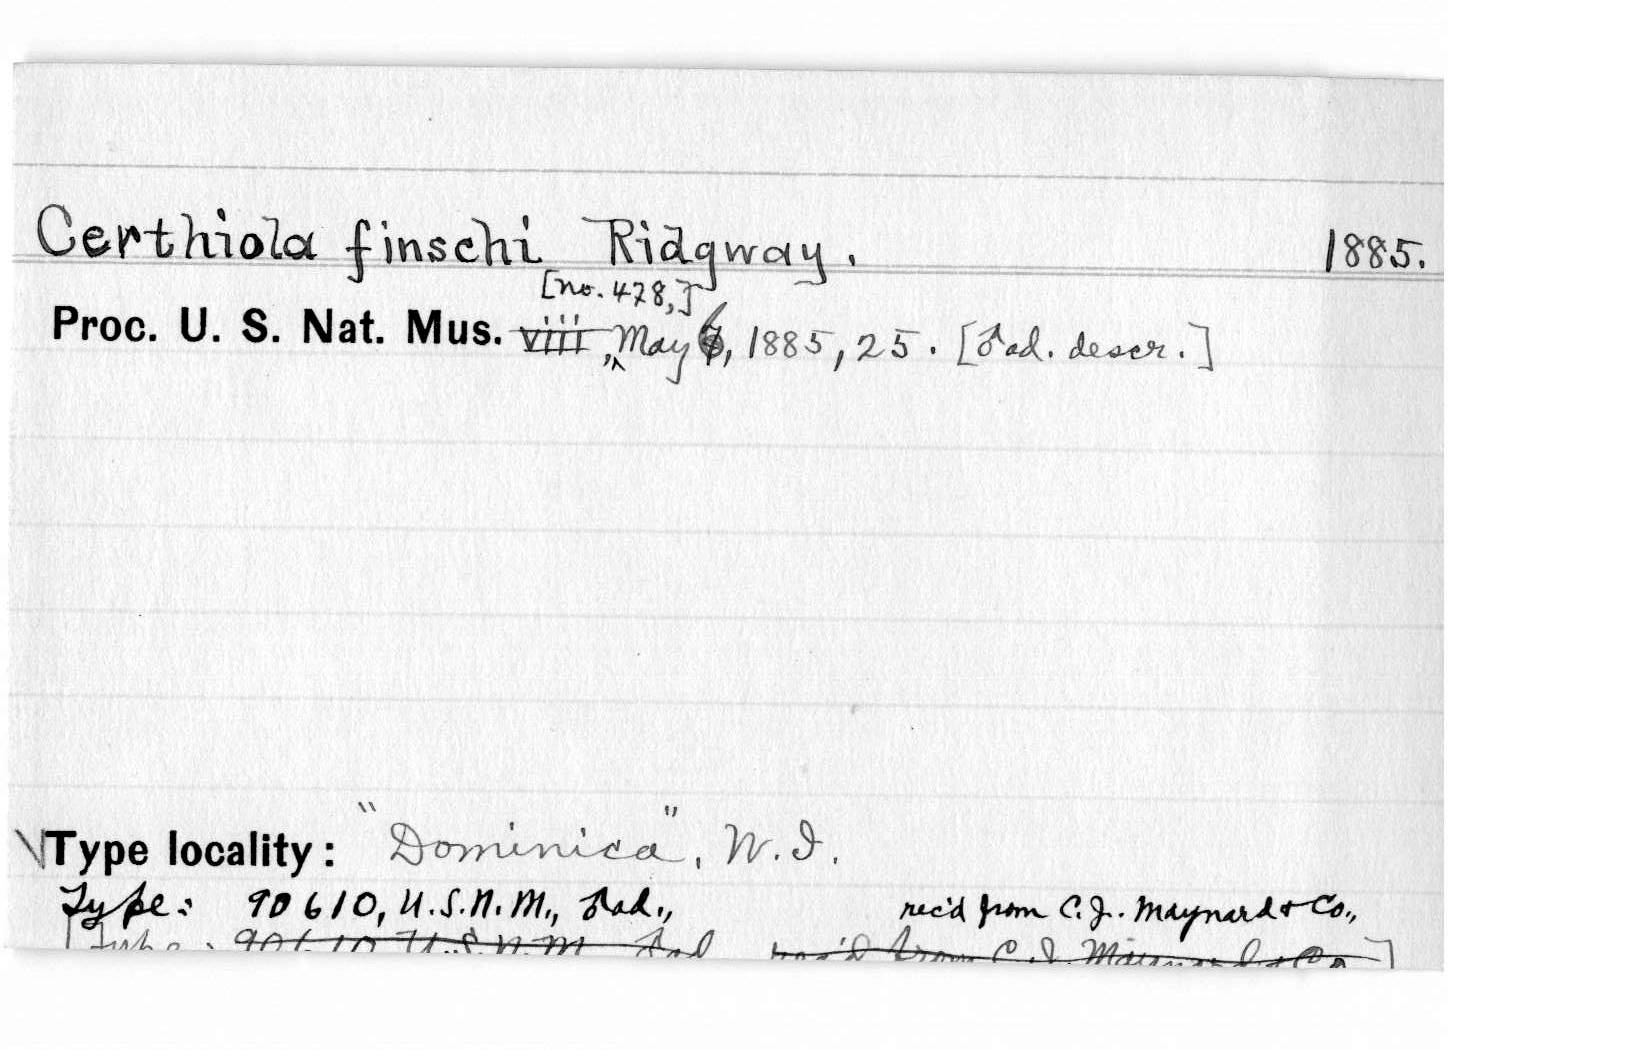 Certhiola finschi Ridgway. 1885.
[no. 478,]
Proc. U. S. Nat. Mus. viii, May 6, 1885, 25. [♂ad. descr.]
Type locality: "Dominica", W.I.
Type: 90610, U.S.N.M., ♂ad., rec'd from C.J. Maynard & Co.,
[Type: 90610 U.S.N.M. ♂ad rec'd from C.J. Maynard & Co]